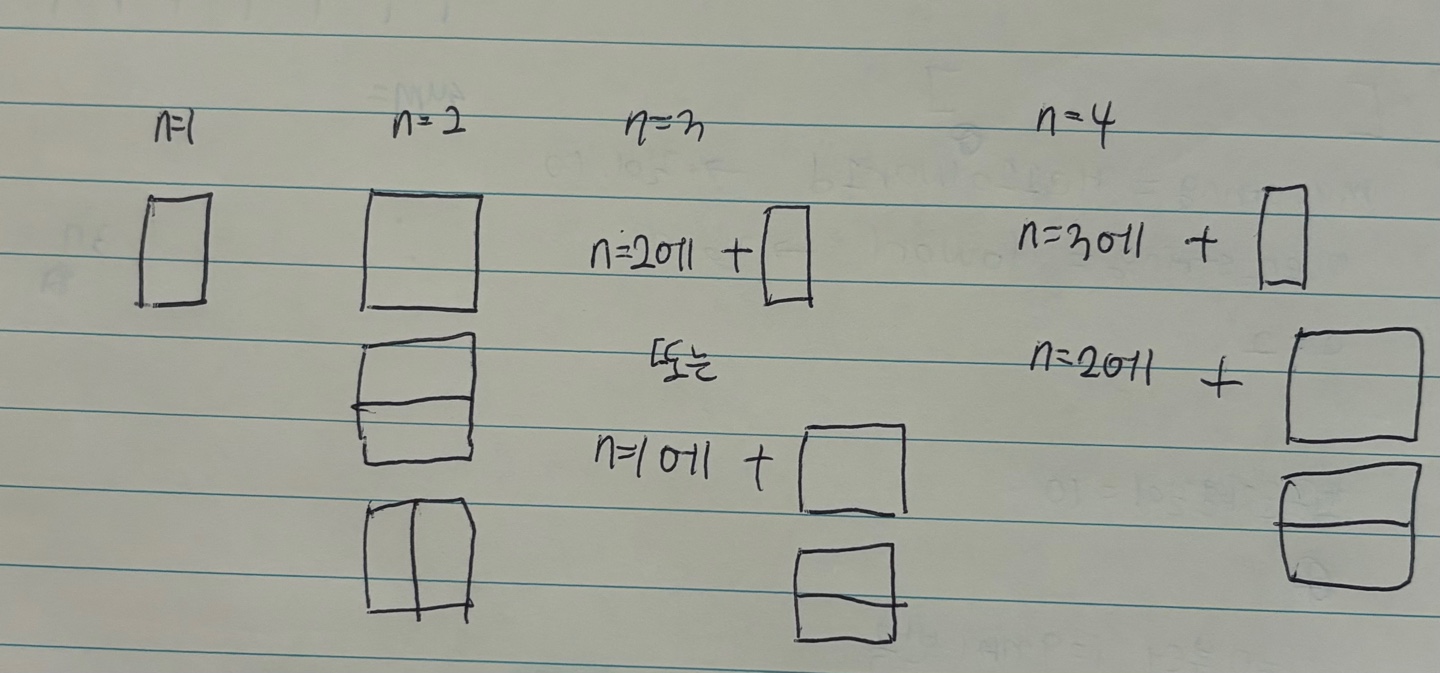 n=1 n=2 n=3 n=4
n=2에 + n=3에 +
또는 n=2에 +
n=1에 +